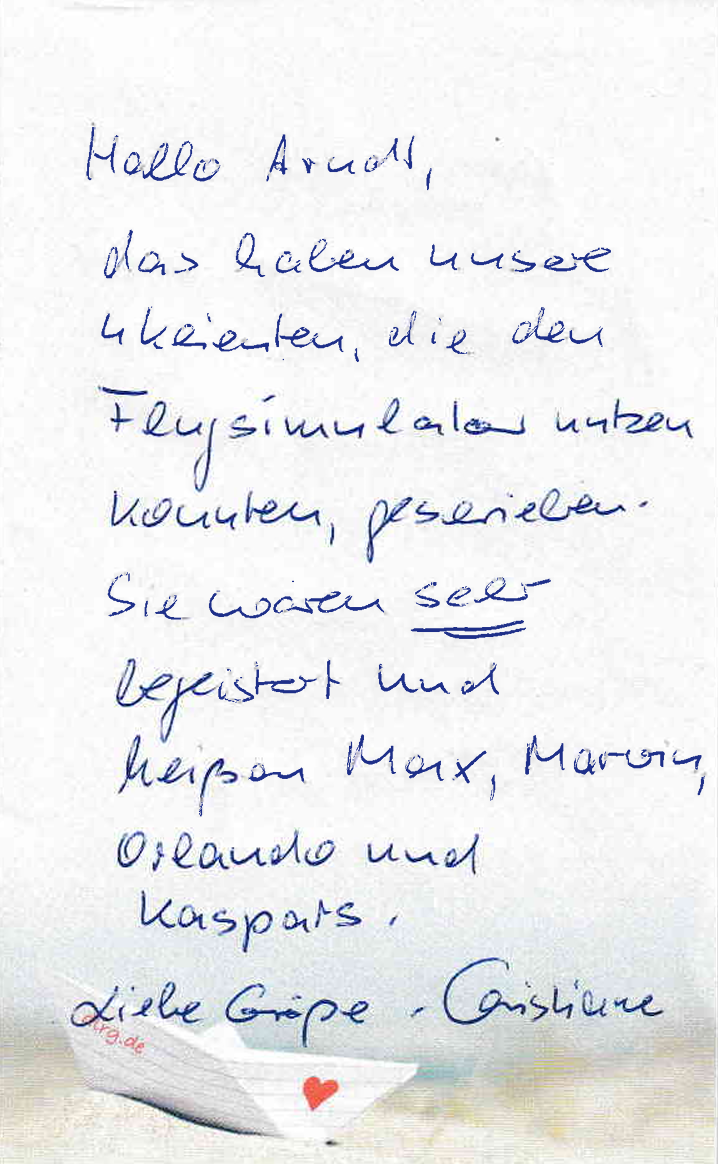 Hallo Arndt,
das haben unsere
Klienten, die den
Flugsimulator nutzen
konnten, geschrieben.
Sie waren sehr
begeistert und
heißen Max, Marvin,
Orlando und
Kaspars.
Liebe Grüße. Christiane
rg.de